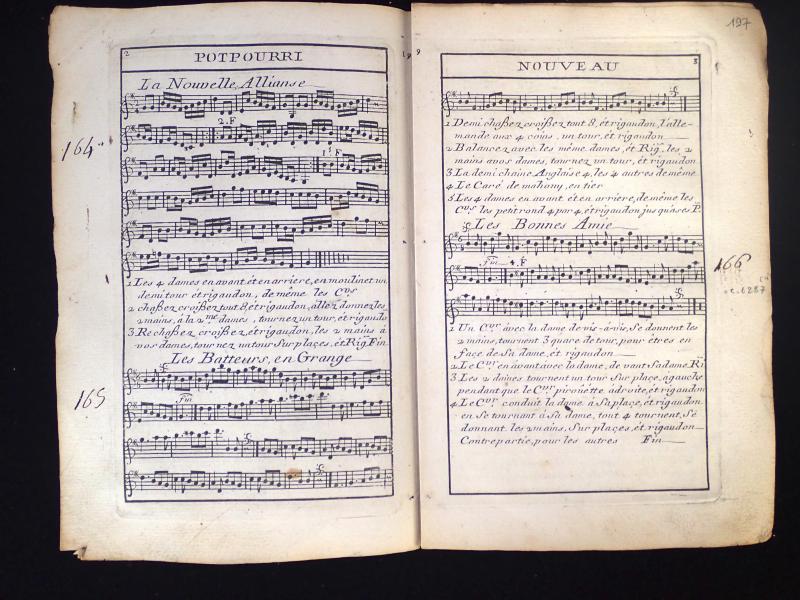 2
POTPOURRI
La Nouvelle Allianse
164
2. F
1.e F
1 Les 4 dames en avant ét en arriere, en moulinet un
demi tour ét rigaudon, de même les C.vrs
2 chaßez croißez tout 8, ét rigaudon, allez donnez les
2 mains, á la 2.me dames, tournez un tour, ét rigaudo
3. Rechaßez croißez, ét rigaudon, les 2 mains á
vos dames, tournez un tour Sur plaçes, ét Rig. Fin
Les Batteurs, en Grange
165
Fin
197
199
NOUVEAU
3
1 Demi chaßez croißez tout 8, ét rigaudon, l'alle-
mande aux 4 coins, un tour, ét rigaudon
2 Balancez avec les même dames, ét Rig. les 2
mains avos dames, tournez un tour, ét rigaudon
3. La demi chaine Anglaise 4, les 4 autres de même
4 Le Caré de mahony, en tier
5 Les 4 dames en avant ét en arriere, de même les
C.vrs les petit rond 4 par 4, ét rigaudon jus qu'a ses P.
Les Bonnes Amie
Fin
4. F
166
1 Un C.vr avec la dame de vis-a-vis, Se donnent les
2 mains, tournent 3 quare de tour, pour étres en
façe de Sa dame, ét rigaudon
2. Le C.vr en avant avec la dame, de vant Sa dame, Ri
3. Les 2 daines tournent un tour Sur plaçe, agauche
pendant que le C.vr pirouette adroite, ét rigaudon
4. Le C.vr conduit la dame á Sa plaçe, ét rigaudon
en Se tournant á Sa dame, tout 4 tournent, Sé
donnant les 2 mains, Sur plaçes, ét rigaudon
Contrepartie, pour les autres Fin